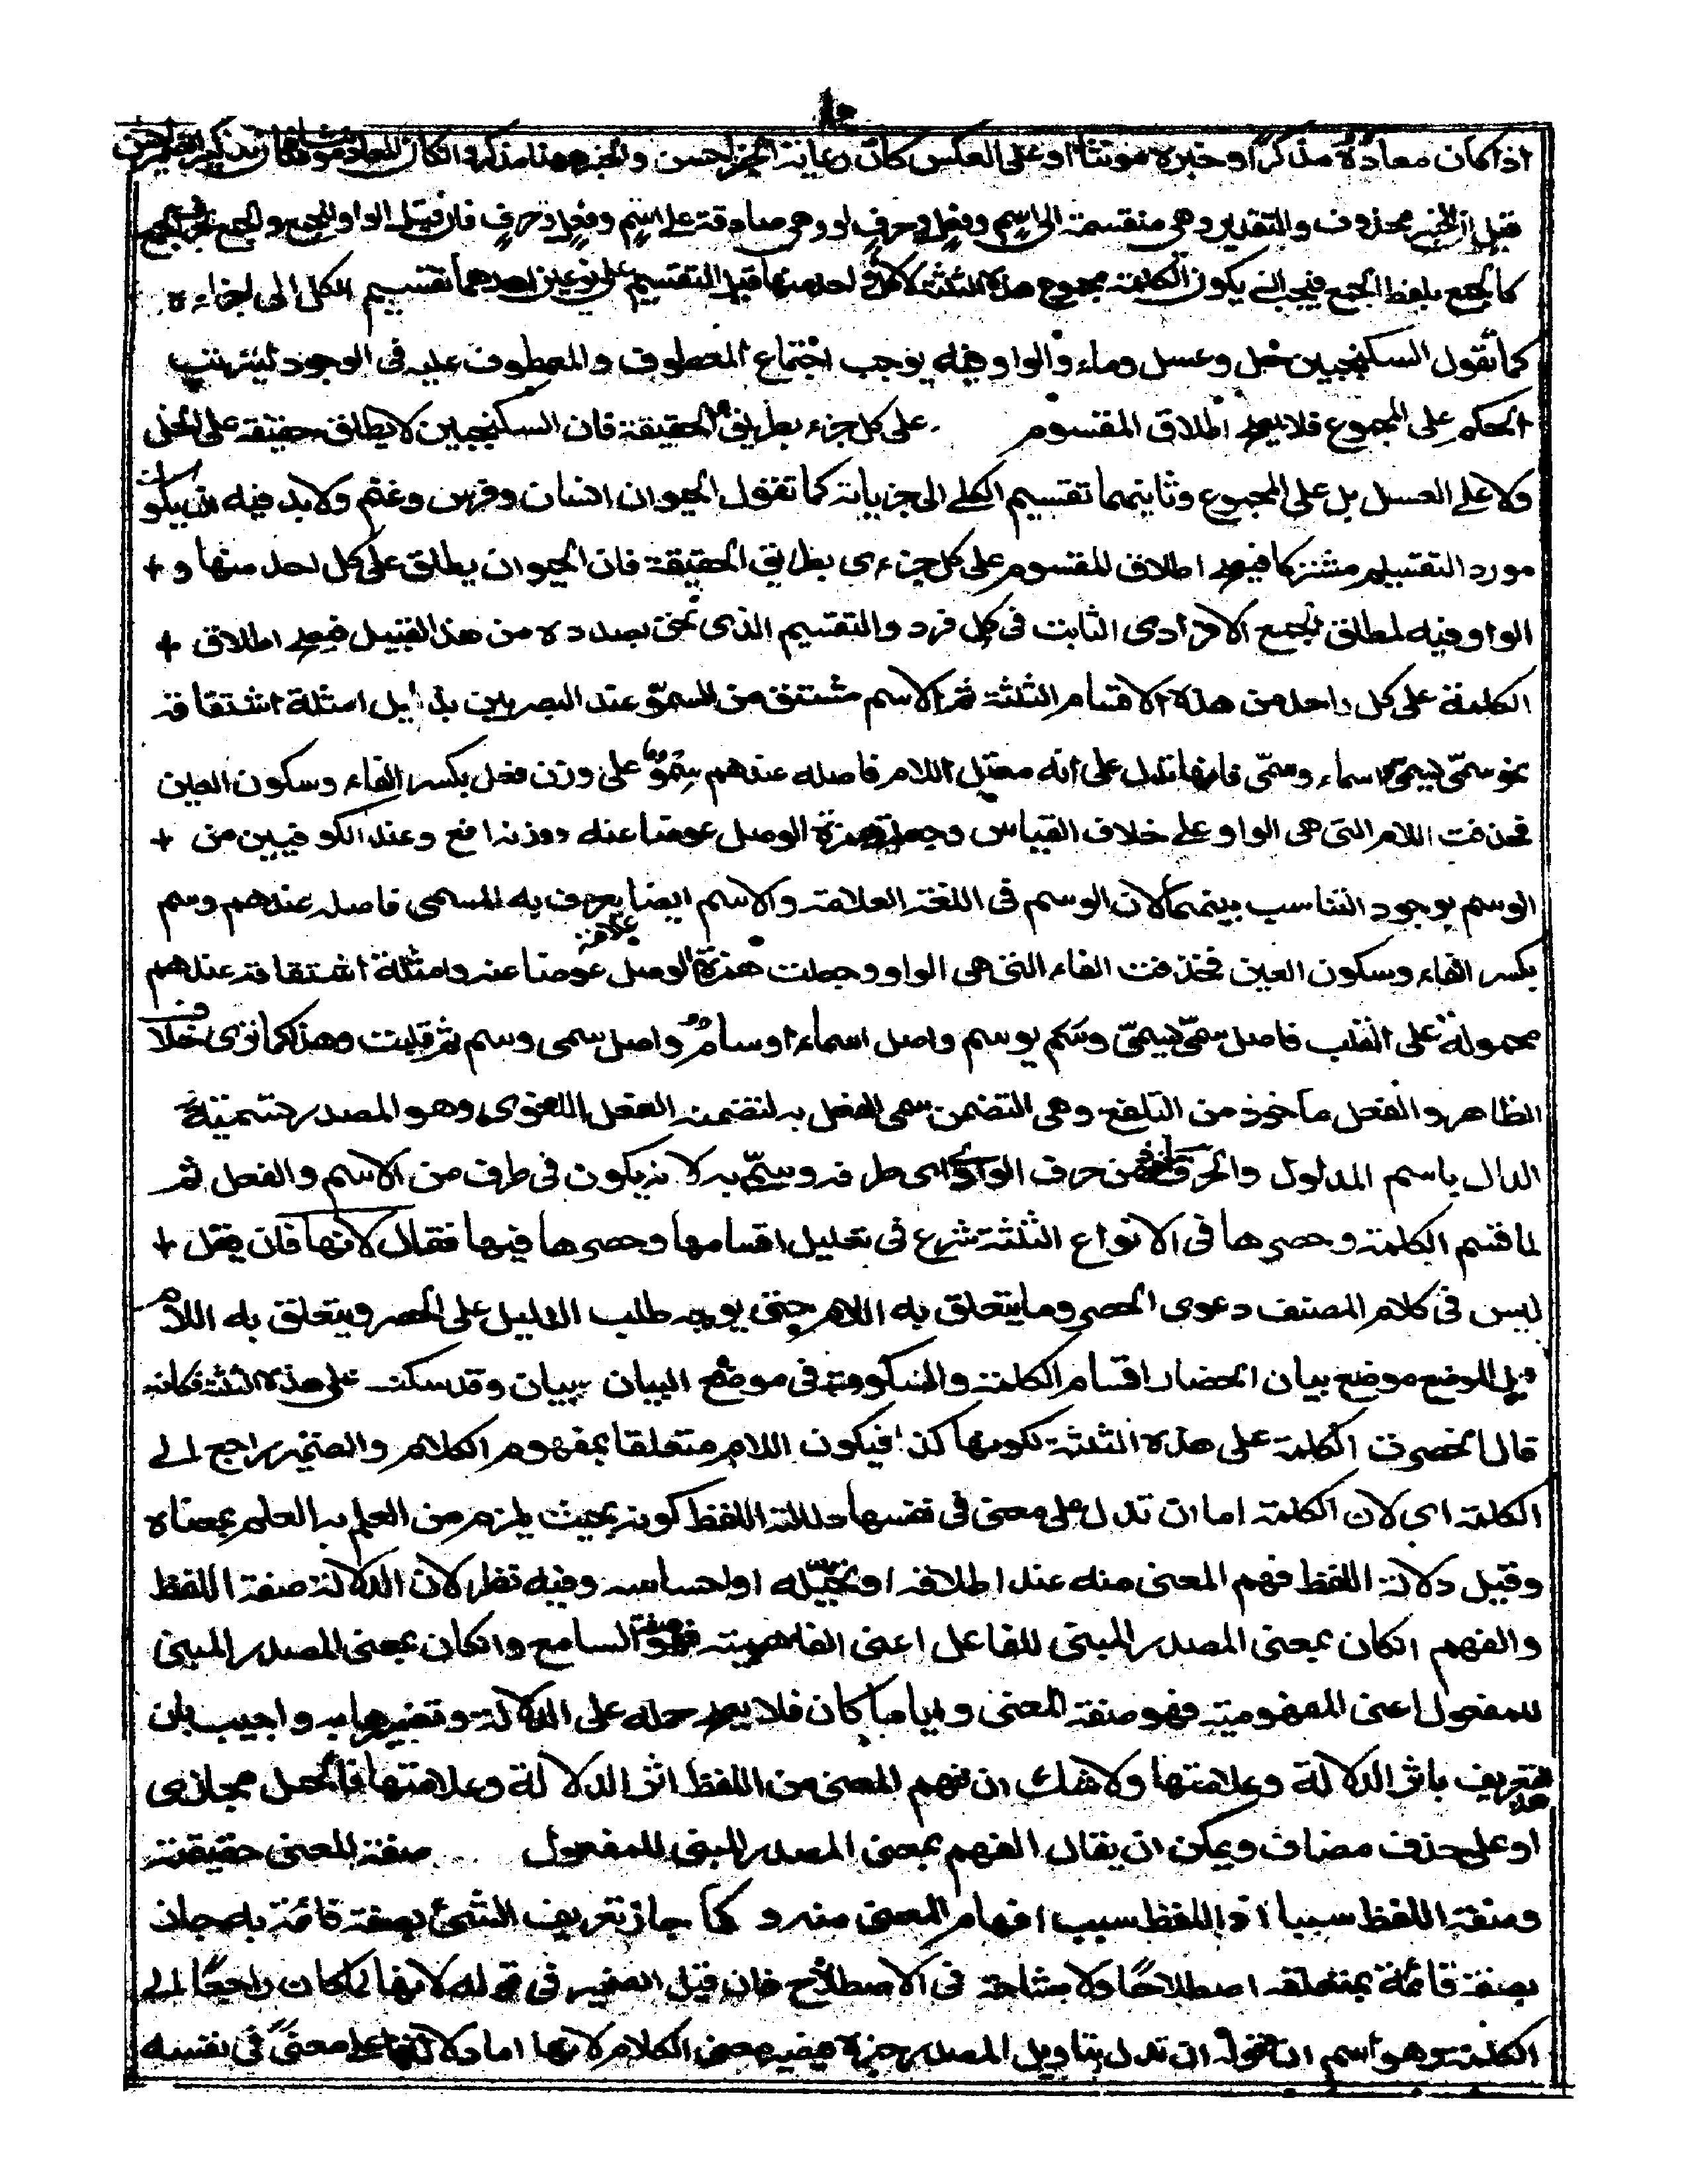 اذا كان معاده مذكرا وخبره مونثا او على العكس كان رعاية الخبر احسن والخبر ههنا مذكر وان كان المعاد مونثا فكان تذكير الضمير احسن
قيل ان الخبر محذوف والتقدير وهى منقسمة الى اسم وفعل وحرف او وهى صادقة على اسم وفعل وحرف فان قيل الواو للجمع والجمع بحرف الجمع
كالجمع بلفظ الجمع فيجب ان يكون الكلمة مجموع هذه الثلثة لا كل واحد منها قيل التقسيم على نوعين احدهما تقسيم الكل الى اجزاءه
كما تقول السكنجبين خل وعسل وماء والواو فيه يوجب اجتماع المعطوف والمعطوف عليه فى الوجود ليترتب
الحكم على المجموع فلا يصح اطلاق المقسوم على كل جزء بطريق الحقيقة فان السكنجبين لا يطلق حقيقة على الخل
ولا على العسل بل على المجموع وثانيهما تقسيم الكلى الى جزياته كما تقول الحيوان انسان وفرس وغنم ولابد فيه ان يكون
مورد التقسيم مشتركا فيصح اطلاق المقسوم على كل جزءى بطريق الحقيقة فان الحيوان يطلق على كل احد منها و +
الواو فيه لمطلق الجمع الافرادى الثابت فى كل فرد والتقسيم الذى نحن بصدده من هذا القبيل فيصح اطلاق +
الكلمة على كل واحد من هذه الاقسام الثلثة ثم الاسم مشتق من السمو عند البصريين بدليل امثلة اشتقاقه
نحو سمى يسمى اسماء وسمى فانها تدل على انه معتل اللام فاصله عندهم سمو على وزن فعل بكسر الفاء وسكون العين
فحذفت اللام التى هى الواو على خلاف القياس وجعلت همزة الوصل عوضا عنه ووزنه افع وعند الكوفيين من +
الوسم بوجود التناسب بينهما لان الوسم فى اللغة العلامة والاسم ايضا علامة يعرف به المسمى فاصله عندهم وسم
بكسر الفاء وسكون العين فحذفت الفاء التى هى الواو وجعلت همزة الوصل عوضا عنه وامثلة اشتقاقه عندهم
محمولة على القلب فاصل سمى يسمى وسم يوسم واصل اسماء اوسام واصل سمى وسم ثم قلبت وهذا كما ترى خلاف
الظاهر والفعل ماخوذ من التلفع وهى التضمن سمى الفعل به لتضمنه الفعل اللغوى وهو المصدر تسمية
الدال باسم المدلول والحرف ماخوذ من حرف الوادى اى طرفه وسمى به لانه يكون فى طرف من الاسم والفعل ثم
لما قسم الكلمة وحصرها فى الانواع الثلثة شرع فى تعليل اقسامها وحصرها فيها فقال لانها فان قيل +
ليس فى كلام المصنف دعوى الحصر وما يتعلق به اللام حتى يوجه طلب الدليل على الحصر ويتعلق به اللام
قيل الموضع موضع بيان انحصار اقسام الكلمة والسكوت فى موضع البيان بيان وقد سكت على هذه الثلثة فكانه
قال انحصرت الكلمة على هذه الثلثة لكونها كذا فيكون اللام متعلقا بمفهوم الكلام والضمير راجع الى
الكلمة اى لان الكلمة اما ان تدل على معنى فى نفسها دلالة اللفظ كونه بحيث يلزم من العلم به العلم بمعناه
وقيل دلالة اللفظ فهم المعنى منه عند اطلاقه او تخيله او احساسه وفيه نظر لان الدلالة صفة اللفظ
والفهم ان كان بمعنى المصدر المبنى للفاعل اعنى الفاهمية فهو صفة السامع وان كان بمعنى المصدر المبنى
للمفعول اعنى المفهومية فهو صفة المعنى وايا ما كان فلا يصح حمله على الدلالة وتفسيرها به واجيب بان
هذا تعريف باثر الدلالة وعلامتها ولا شك ان فهم المعنى من اللفظ اثر الدلالة وعلامتها فالحمل مجازى
او على حذف مضاف ويمكن ان يقال الفهم بمعنى المصدر المبنى للمفعول صفة للمعنى حقيقة
وصفة اللفظ سببا اذ اللفظ سبب افهام المعنى منه و كما جاز تعريف الشئ بصفة قائمة به جاز
بصفة قائمة بمتعلقه اصطلاحا ولا مشاحة فى الاصطلاح فان قيل الضمير فى قوله لانها لما كان راجعا الى
الكلمة وهو اسم ان فقوله ان تدل بتاويل المصدر خبره فيصير معنى الكلام لانها اما دلالتها على معنى فى نفسه